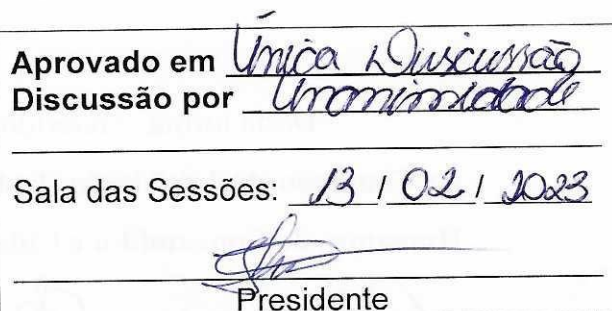 Aprovado em Única Discussão
Discussão por Unanimidade
Sala das Sessões: 13 / 02 / 2023
Presidente